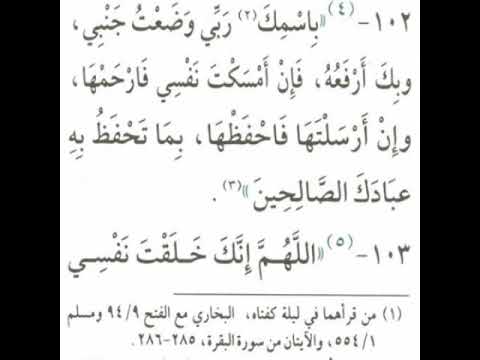 ١٠٢-(٤)«بِاسْمِكَ(٢) رَبِّي وَضَعْتُ جَنْبِي،
وبِكَ أَرْفَعُهُ، فَإِنْ أَمْسَكْتَ نَفْسِي فَارْحَمْهَا،
وإِنْ أَرْسَلْتَهَا فَاحْفَظْهَا، بِمَا تَحْفَظُ بِهِ
عِبَادَكَ الصَّالِحِينَ»(٣).
١٠٣-(٥)«اللَّهُمَّ إِنَّكَ خَلَقْتَ نَفْسِي
(١) من قرأهما في ليلة كفتاه، البخاري مع الفتح ٩٤/٩ ومسلم
٥٥٤/١، والآيتان من سورة البقرة، ٢٨٥-٢٨٦.